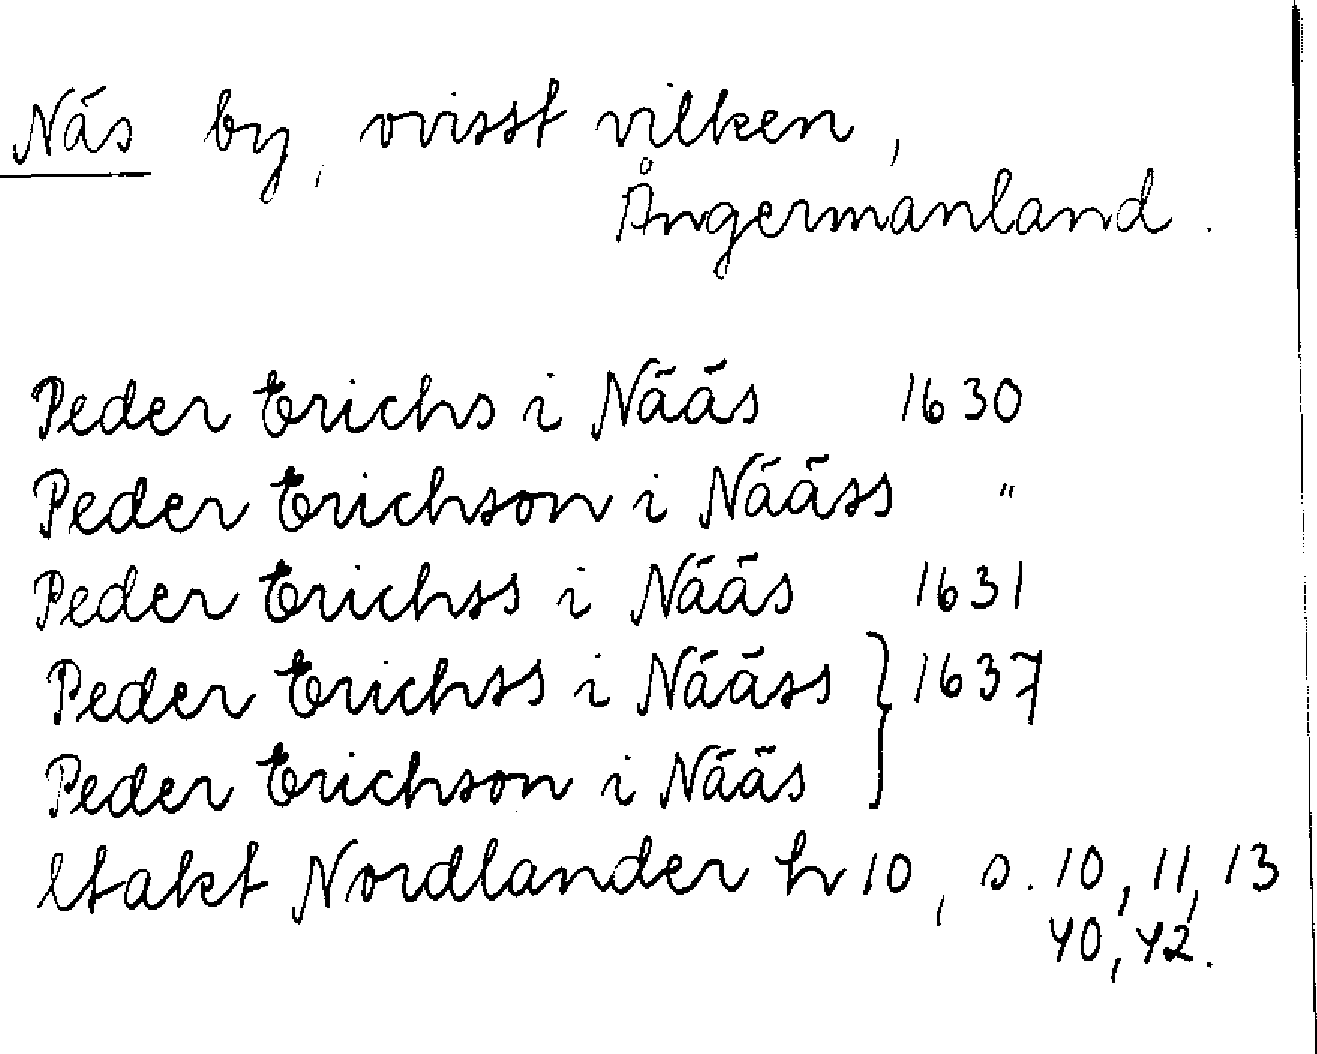 Näs by, ovisst vilken,
Ångermanland.
Peder Erichs i Nääs 1630
Peder Erichson i Nääss "
Peder Erichss i Nääs 1631
Peder Erichss i Nääss } 1637
Peder Erichson i Nääs
Utakt Nordlander h 10, s. 10, 11, 13
40, 42.